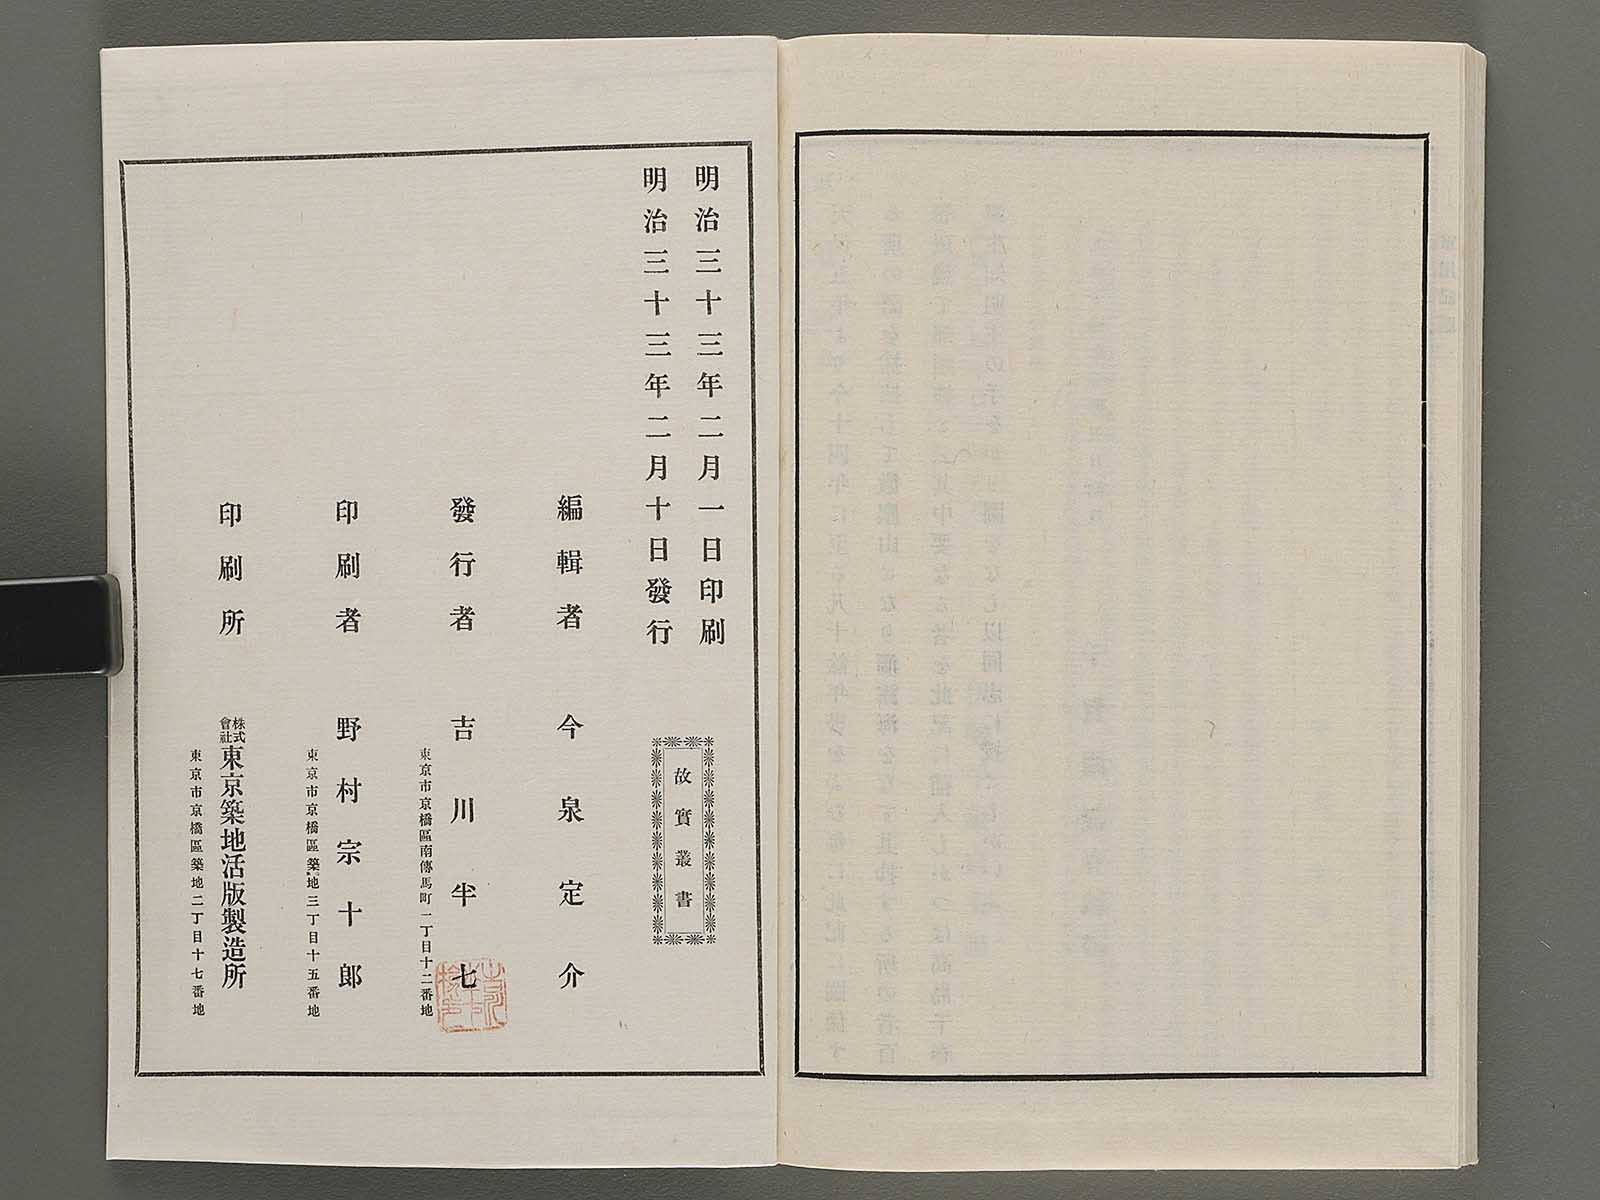 明治三十三年二月一日印刷
明治三十三年二月十日發行
故實叢書
編輯者 今泉定介
發行者 吉川半七
東京市京橋區南傳馬町一丁目十二番地
印刷者 野村宗十郎
東京市京橋區築地三丁目十五番地
印刷所 株式會社東京築地活版製造所
東京市京橋區築地二丁目十七番地